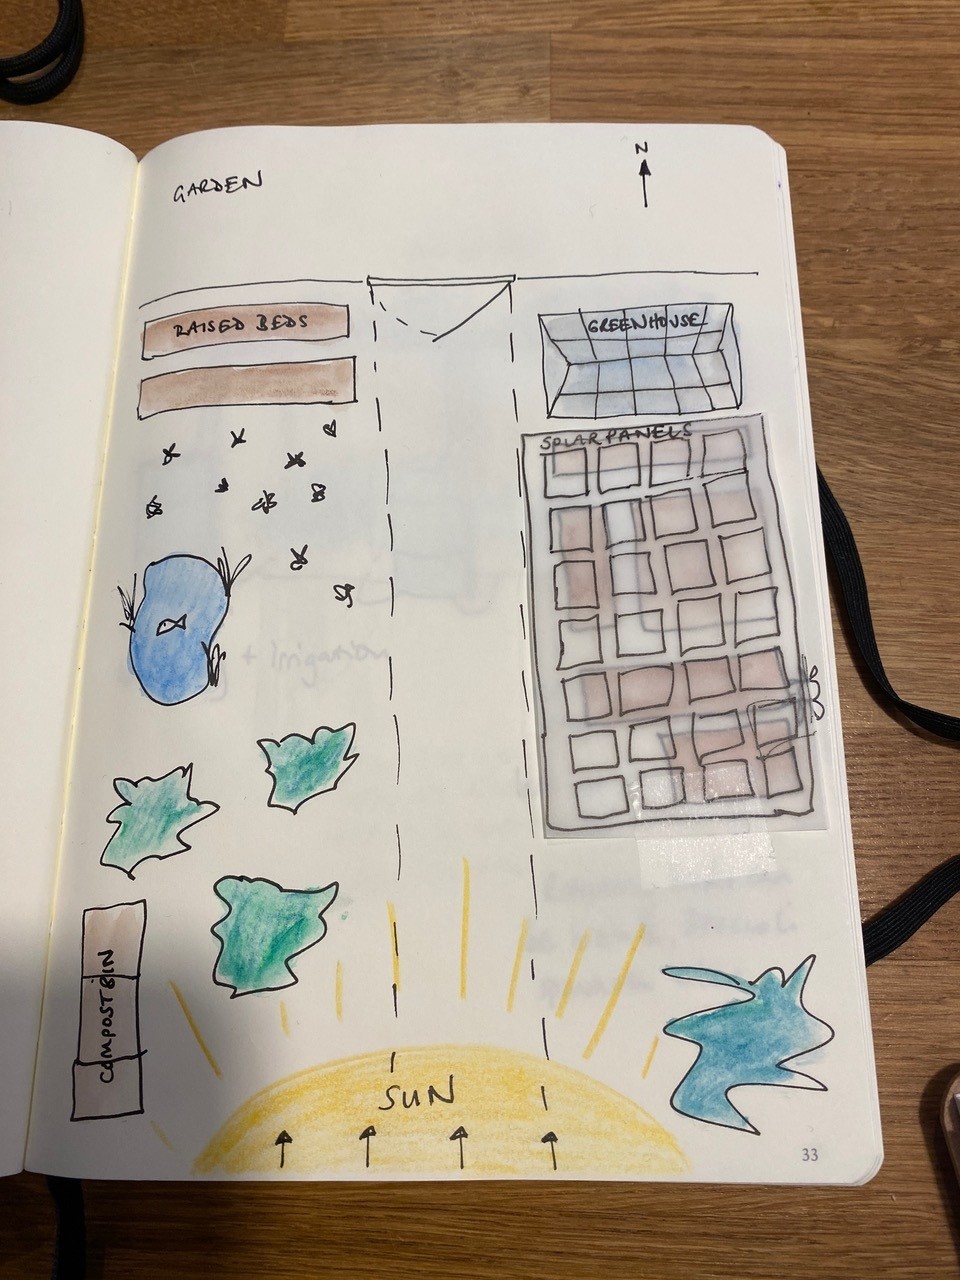 GARDEN
N
RAISED BEDS
GREENHOUSE
SOLAR PANELS
+ Irrigation
COMPOST BIN
SUN
33